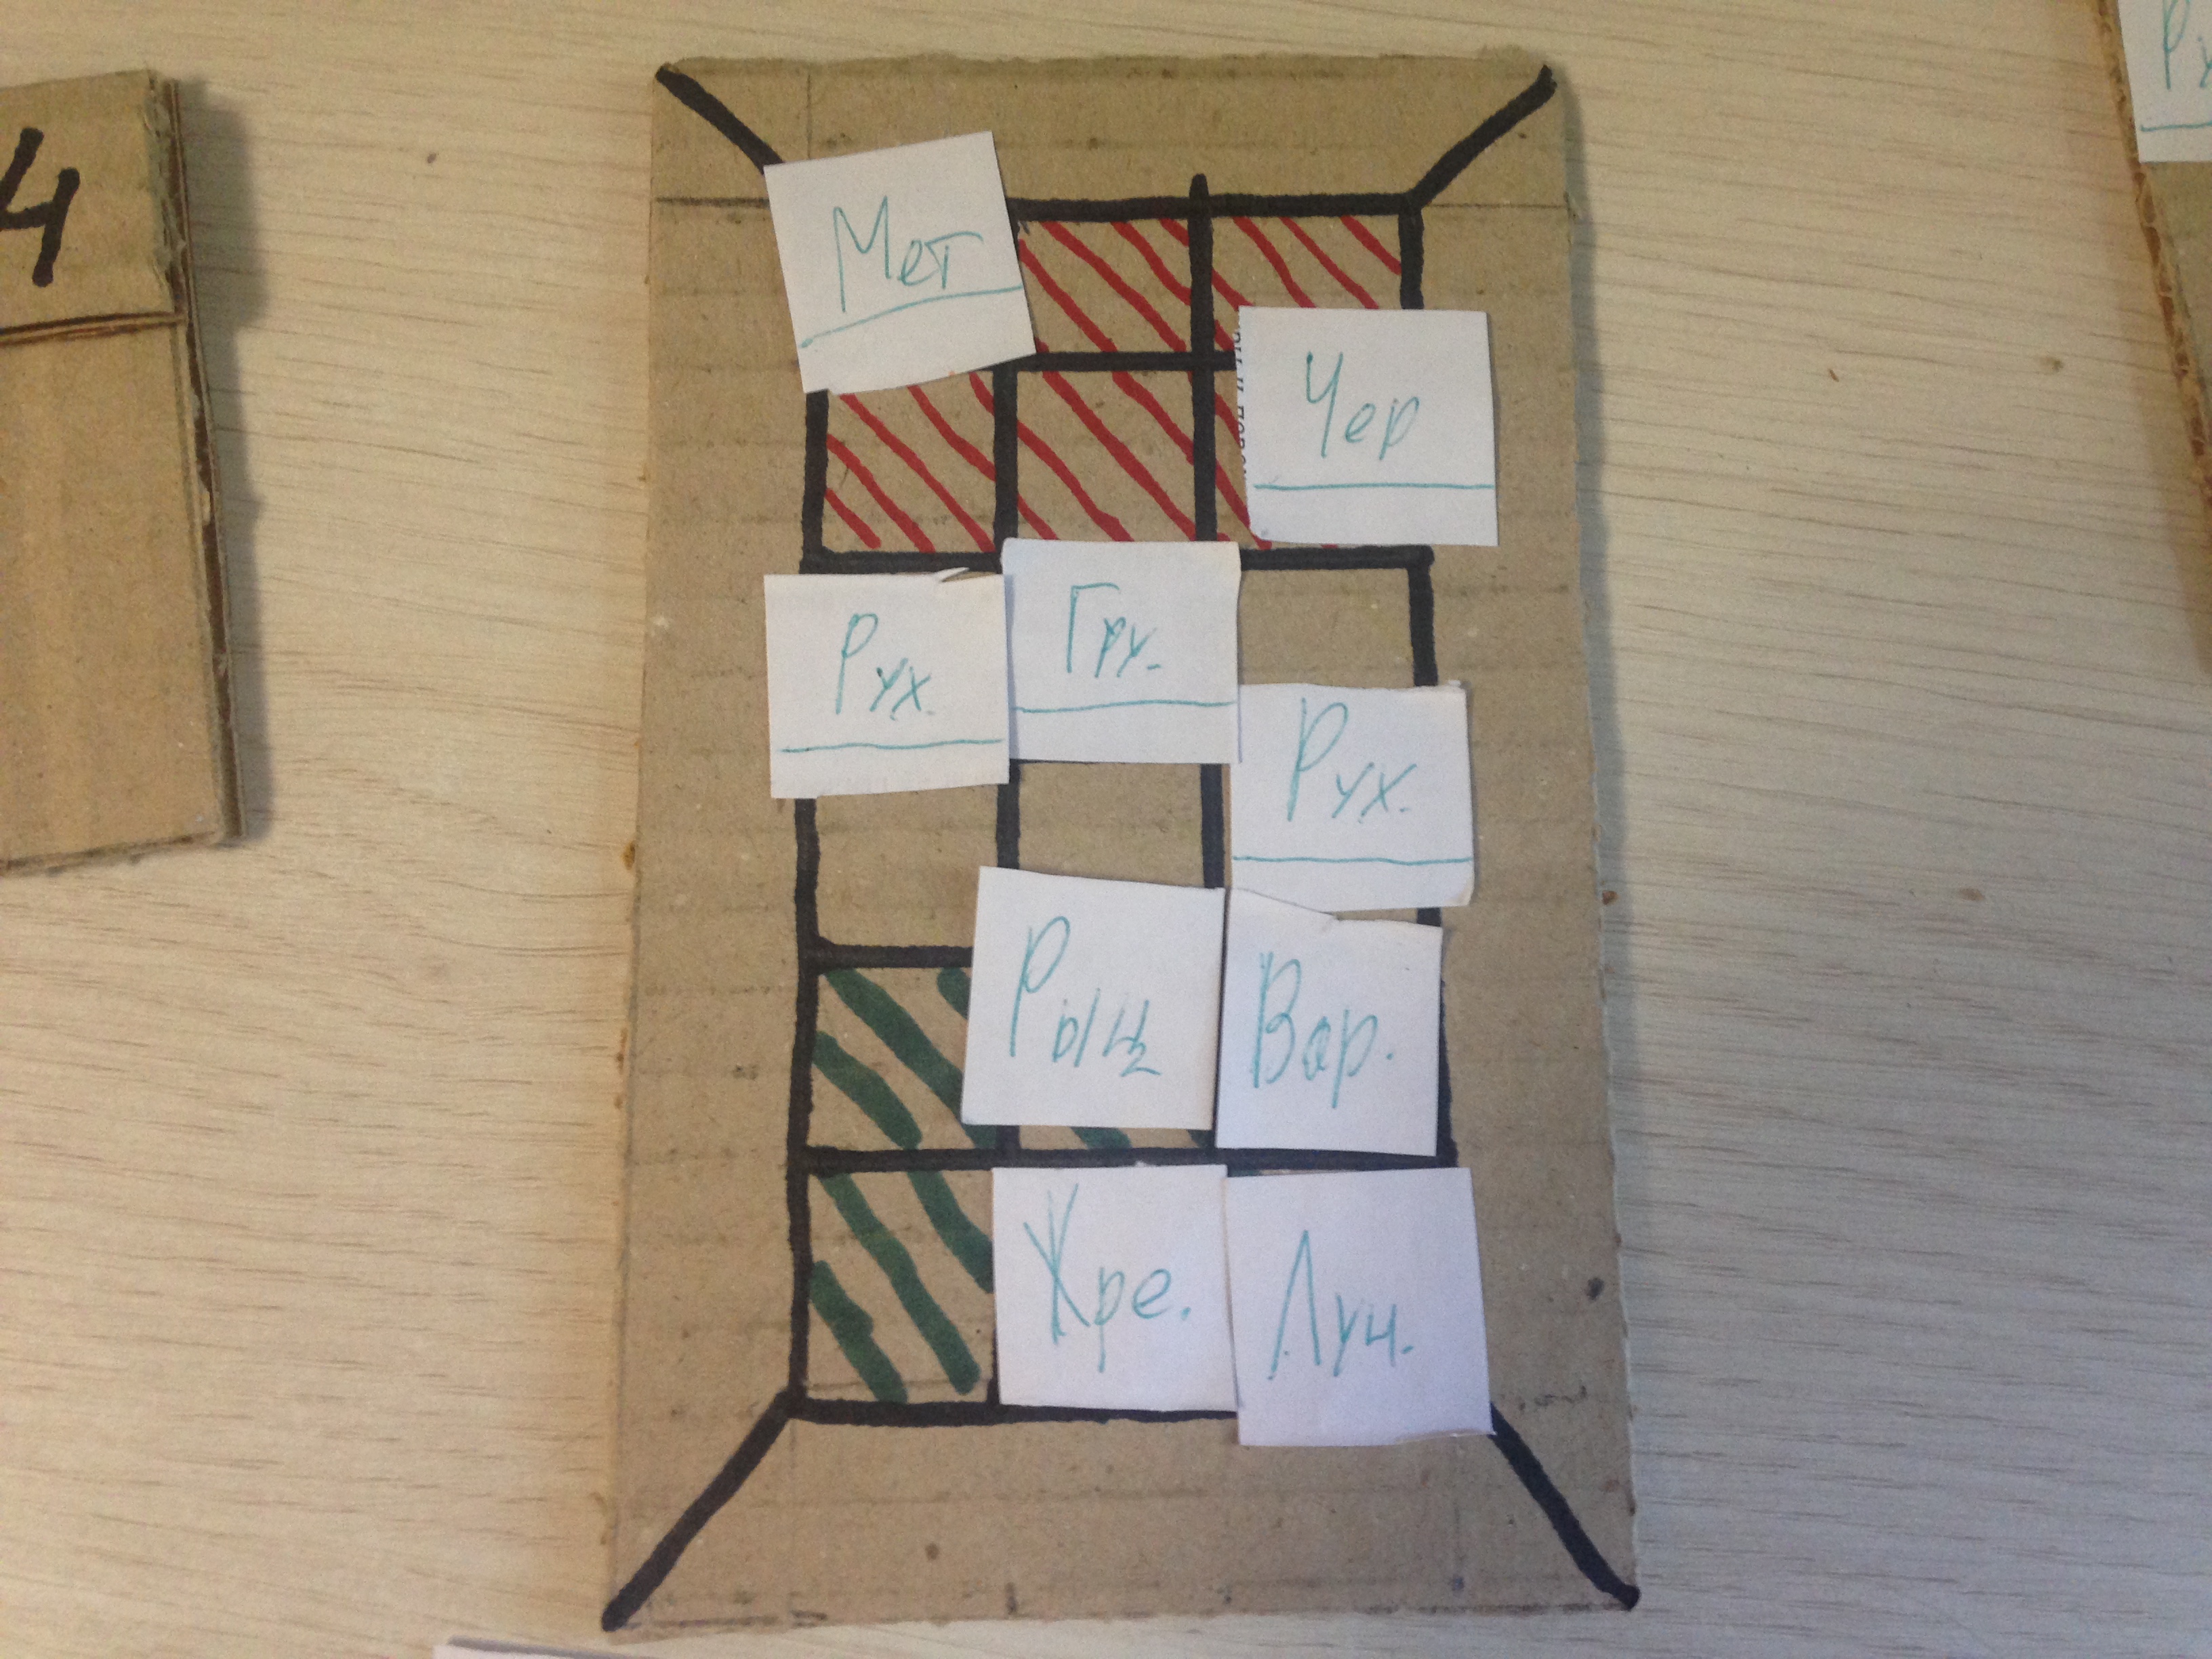 Ч
Мет
Чер
Рух.
Гру.
Рух.
Рыц
Вар.
Жре.
Луч.